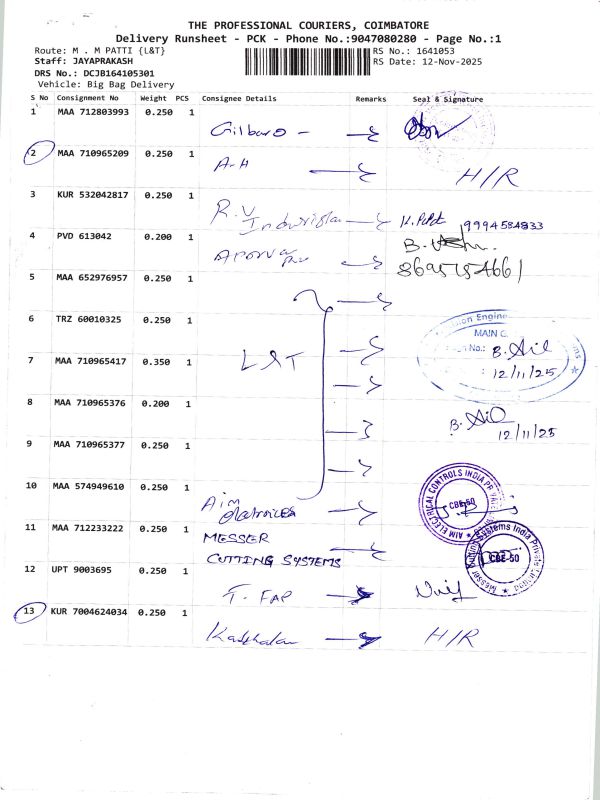 THE PROFESSIONAL COURIERS, COIMBATORE
Delivery Runsheet - PCK - Phone No.:9047080280 - Page No.:1
Route: M . M PATTI {L&T}
RS No.: 1641053
Staff: JAYAPRAKASH
RS Date: 12-Nov-2025
DRS No.: DCJB164105301
Vehicle: Big Bag Delivery
S No Consignment No Weight PCS Consignee Details Remarks Seal & Signature
1 MAA 712803993 0.250 1
2 MAA 710965209 0.250 1
A-H H/R
3 KUR 532042817 0.250 1
R.V 9994584833
4 PVD 613042 0.200 1
5 MAA 652976957 0.250 1
6 TRZ 60010325 0.250 1
MAIN
No.: B.
12/11/25
7 MAA 710965417 0.350 1
L&T
8 MAA 710965376 0.200 1
B.
12/11/25
9 MAA 710965377 0.250 1
10 MAA 574949610 0.250 1
Aim
AIM ELECTRICAL CONTROLS INDIA
CBE-50
11 MAA 712233222 0.250 1
MESSER
CUTTING SYSTEMS
Messer Cutting Systems India Private
CBE-50
12 UPT 9003695 0.250 1
13 KUR 7004624034 0.250 1
H/R